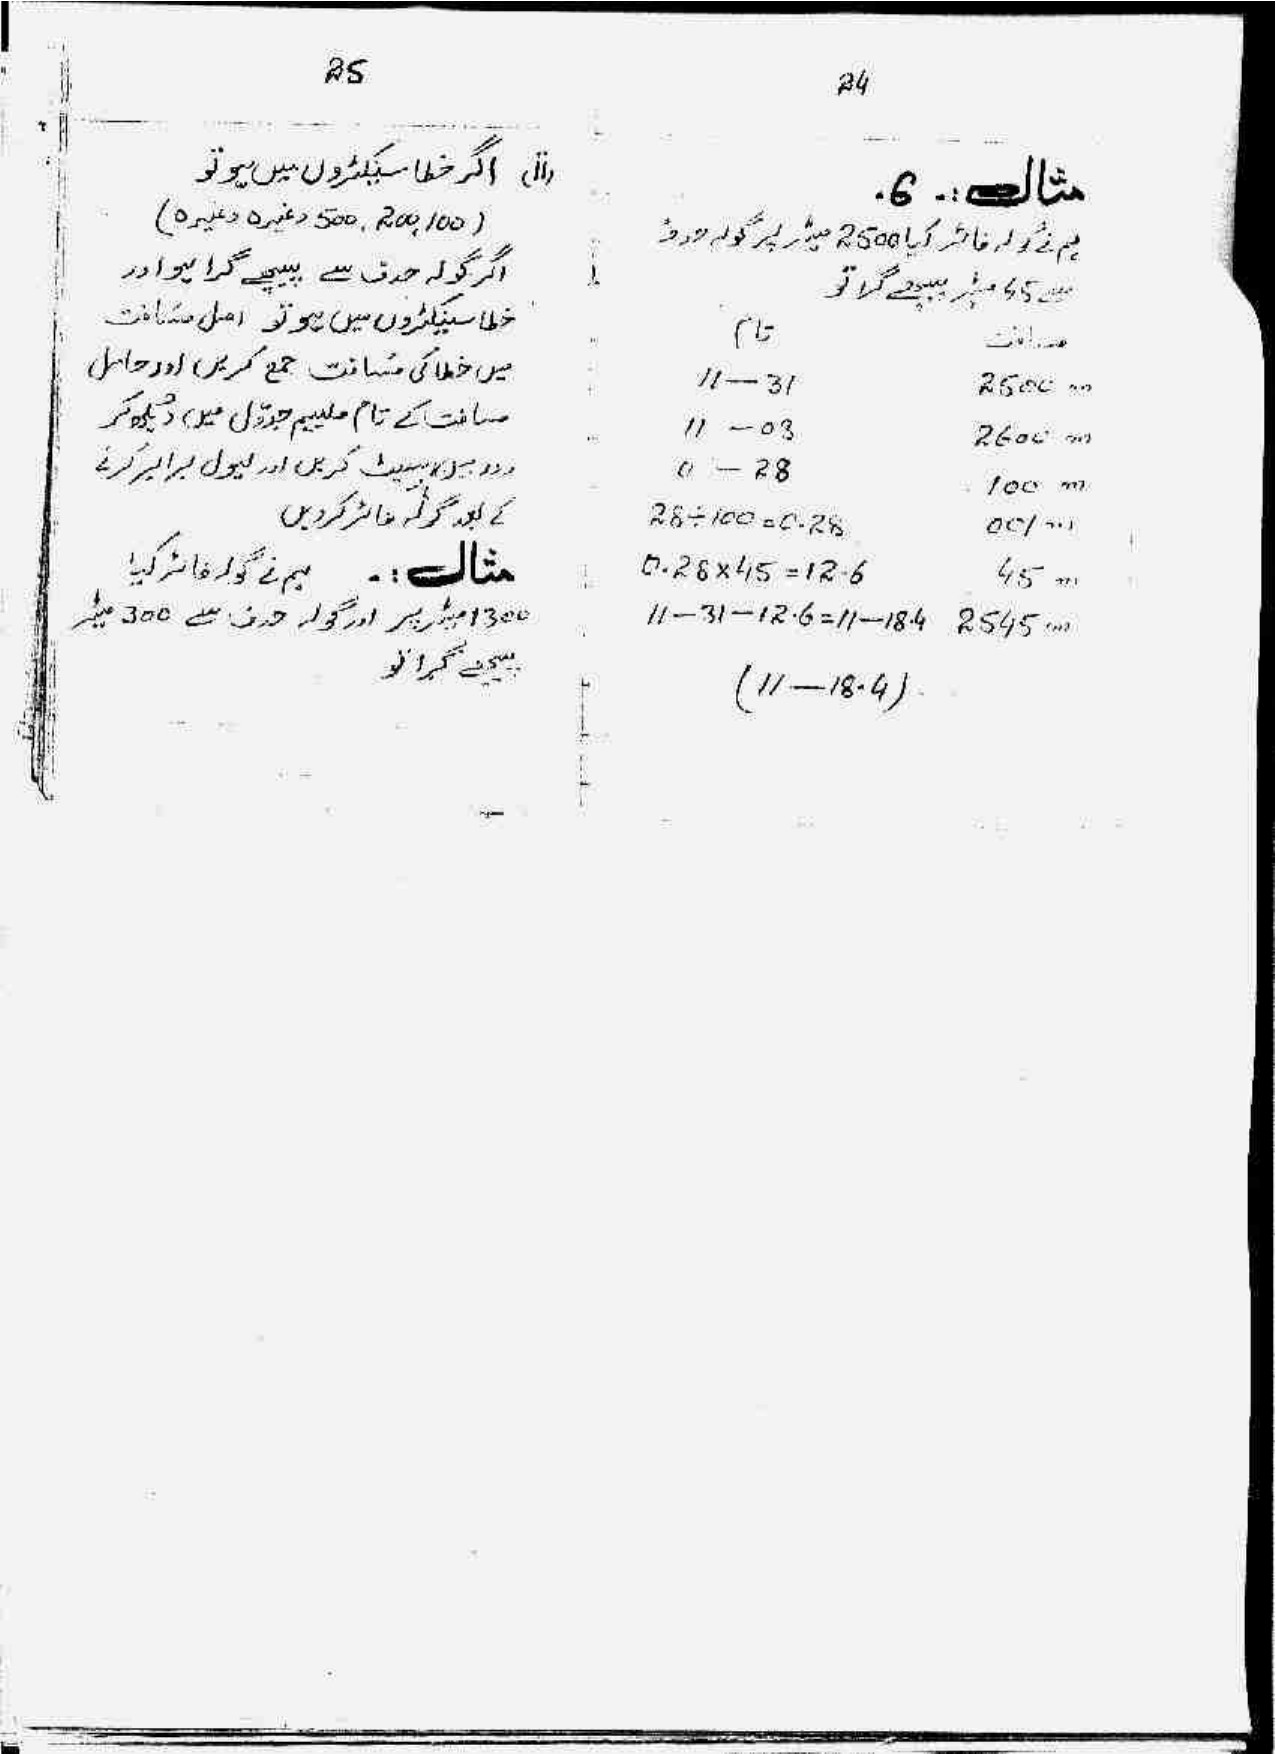 24
مثال :. 6.
ہم نے گولہ فائر کیا 2500 میٹر پر گولہ ہدف
سے 45 میٹر پیچھے گرا تو
مسافت تام
2500 m 11 — 31
2600 m 11 — 03
100 m 0 — 28
001 m 28÷100=0.28
45 m 0.28×45=12.6
2545 m 11—31—12.6=11—18.4
(11—18.4)
25
(ii) اگر خطا سینکڑوں میں ہو تو
(100، 200، 500 وغیرہ وغیرہ)
اگر گولہ حدف سے پیچھے گرا ہو اور
خطا سینکڑوں میں ہو تو اصل مسافت
میں خطا کی مسافت جمع کریں اور حاصل
مسافت کے تام جدول میں دیکھ کر
سیٹ کریں اور لیول برابر کرنے
کے بعد گولہ فائر کردیں
مثال :. ہم نے گولہ فائر کیا
1300 میٹر پر اور گولہ حدف سے 300 میٹر
پیچھے گرا تو